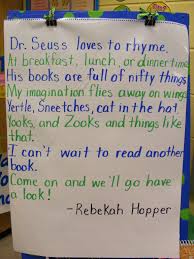 Dr. Seuss loves to rhyme,
At breakfast, lunch, or dinnertime
His books are full of nifty things
My imagination flies away on wings.
Yertle, Sneetches, cat in the hat,
Yooks, and Zooks and things like
that.
I can't wait to read another
book.
Come on and we'll go have
a look!
-Rebekah Hopper